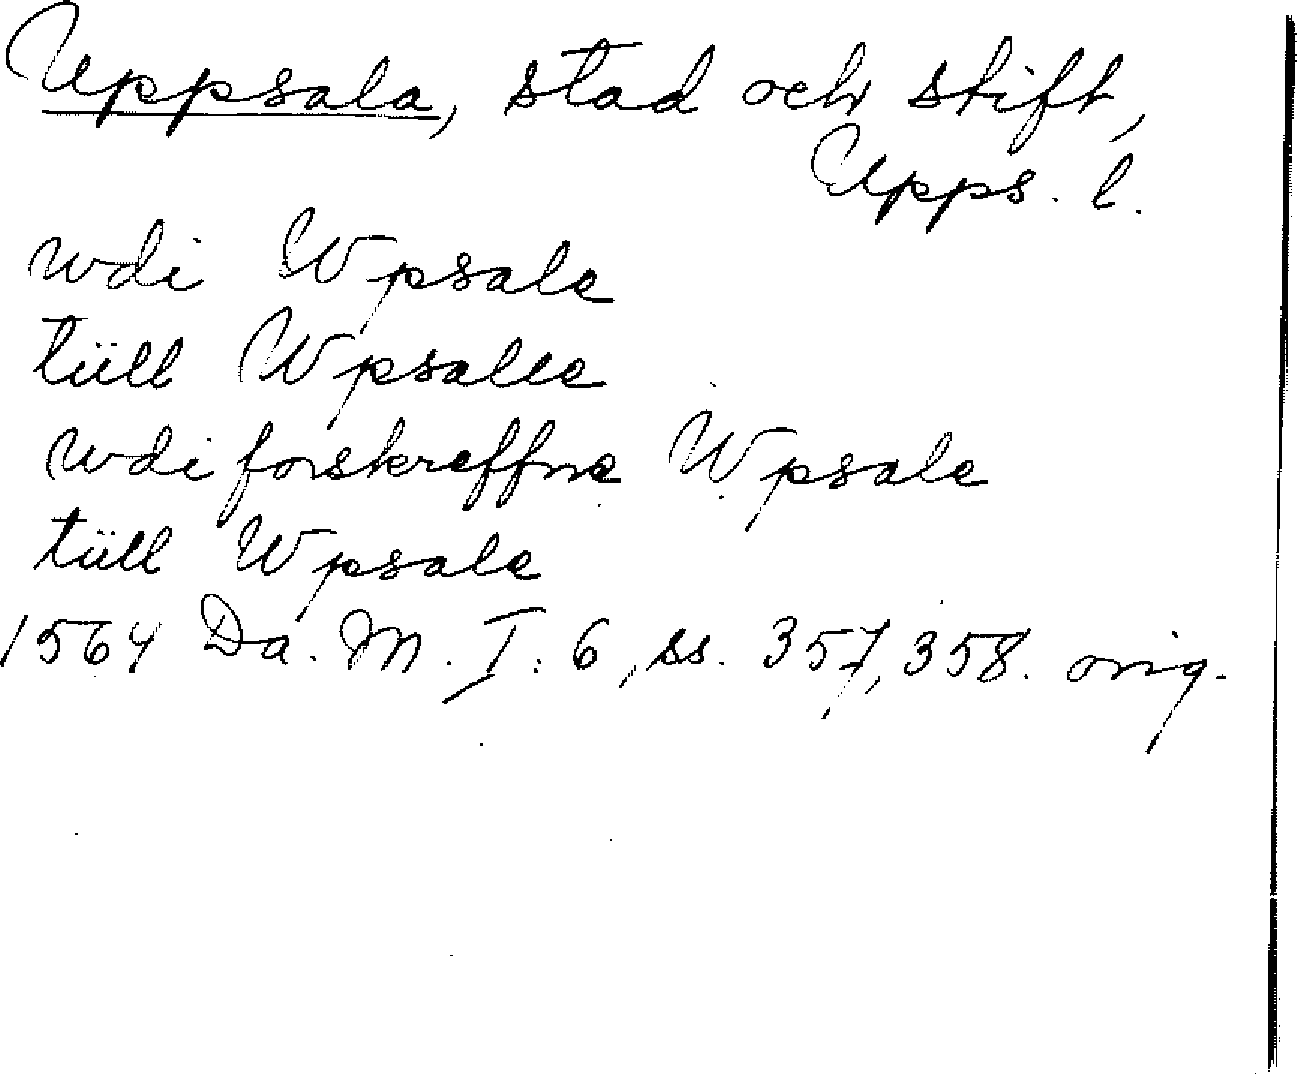 Uppsala, stad och stift,
Upps. l.
wdi Wpsale
tüll Wpsalle
wdi forskreffne Wpsale
tüll Wpsale
1564 Da. M. I: 6, ss. 357, 358. orig.